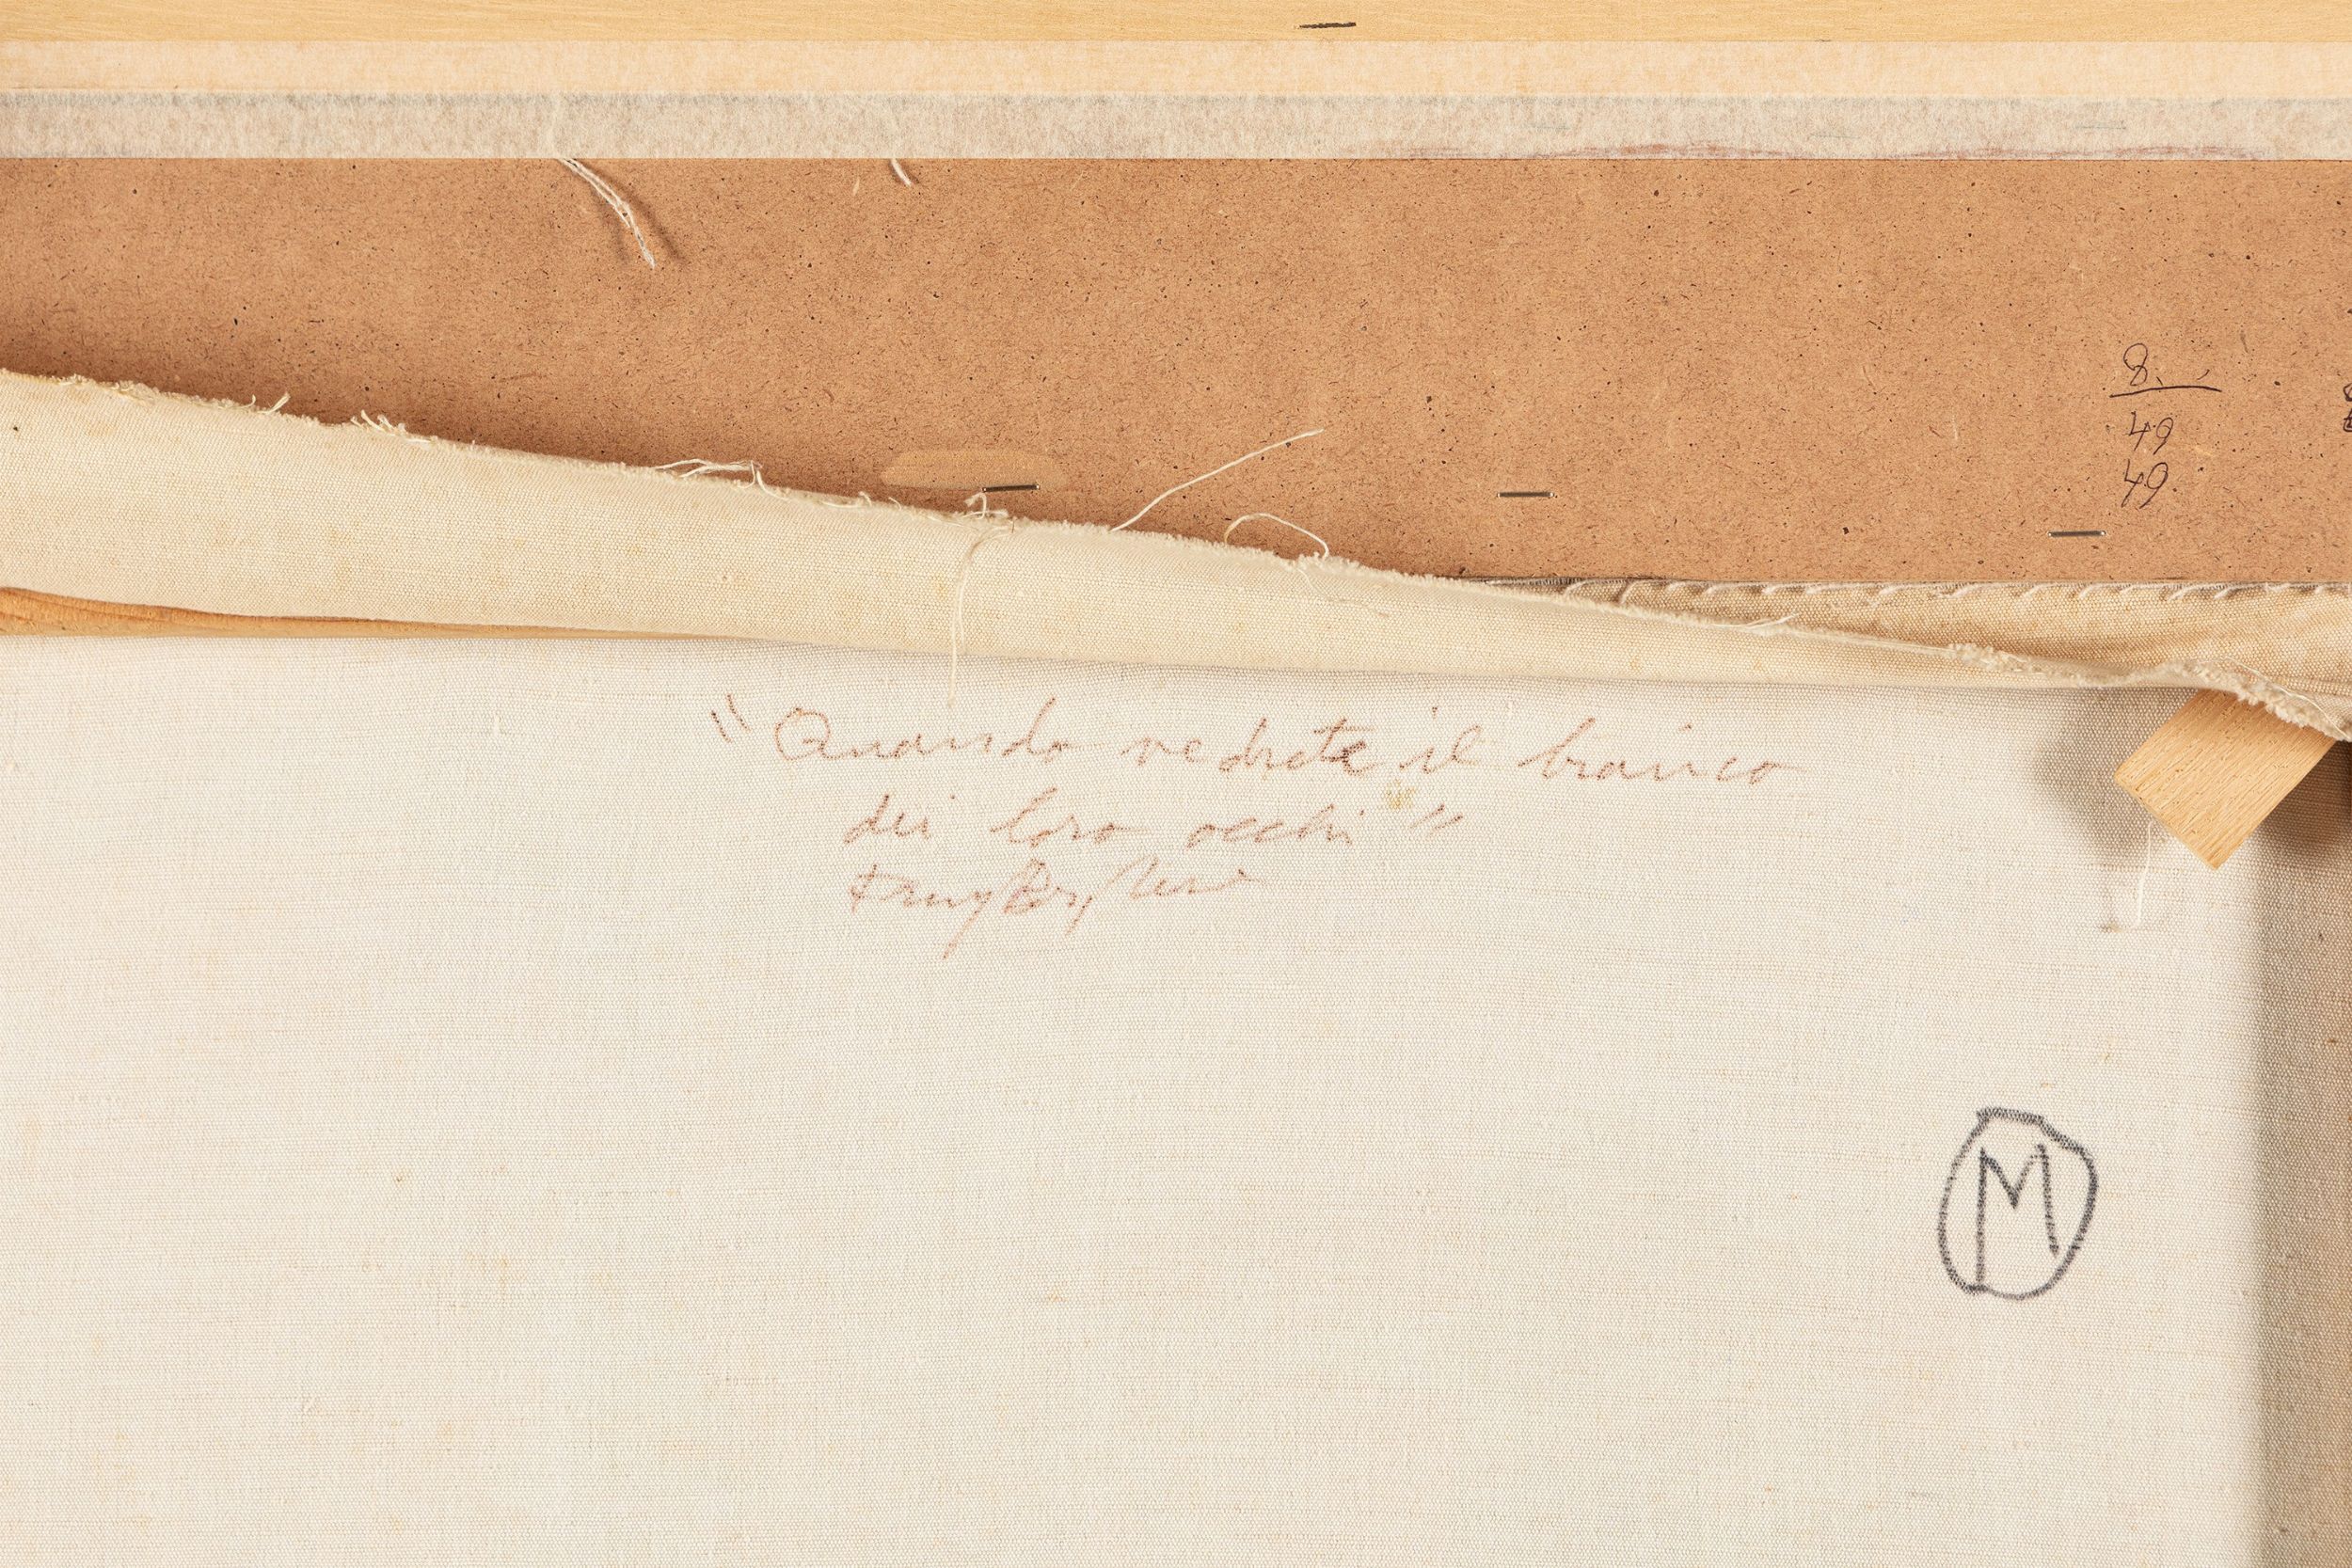 8.
49
49
"Quando vedrete il bianco
dei loro occhi"
Franz Borghese
M